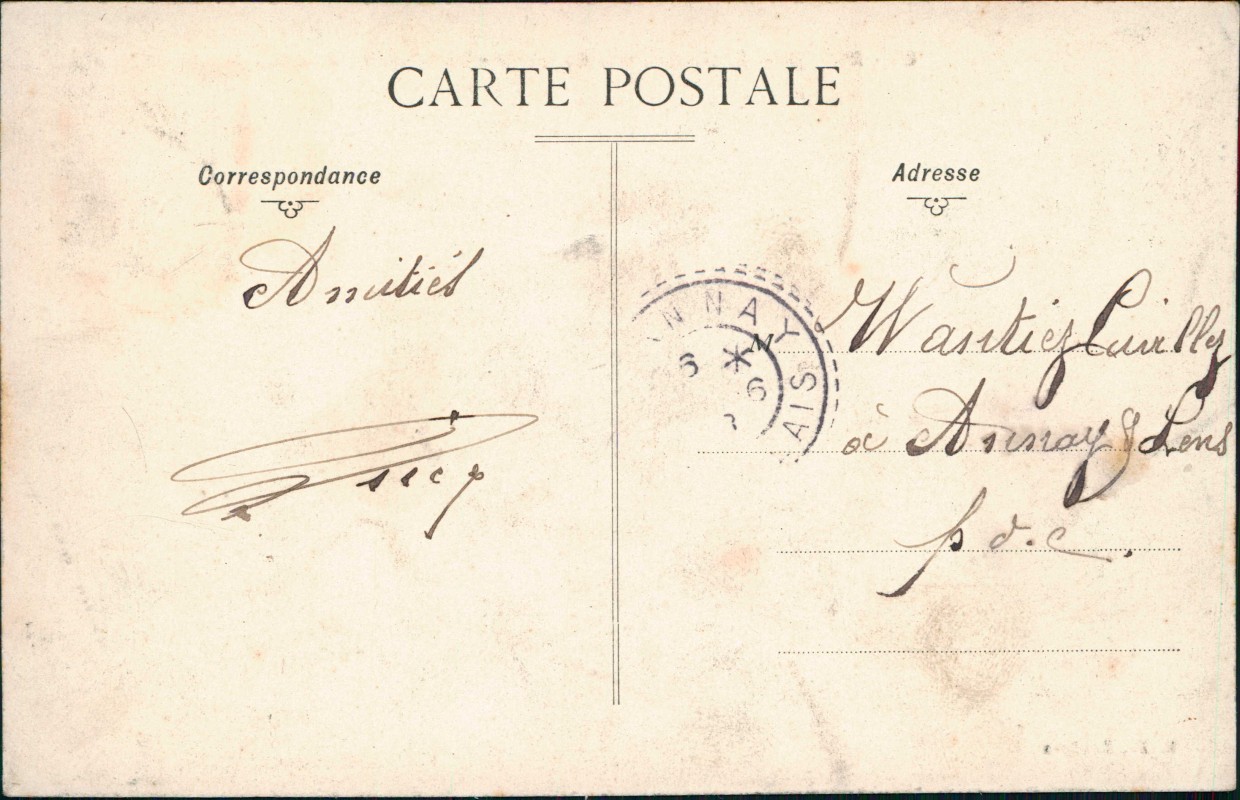 CARTE POSTALE
Correspondance
Amitiés
Adresse
NNAY
AIS
6 *
6
M
Wantiez
à Annay S Lens
p d. c.